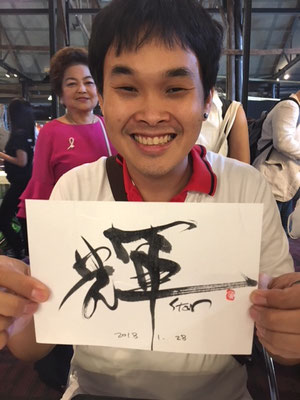 輝
Star
2018 . 1 . 28